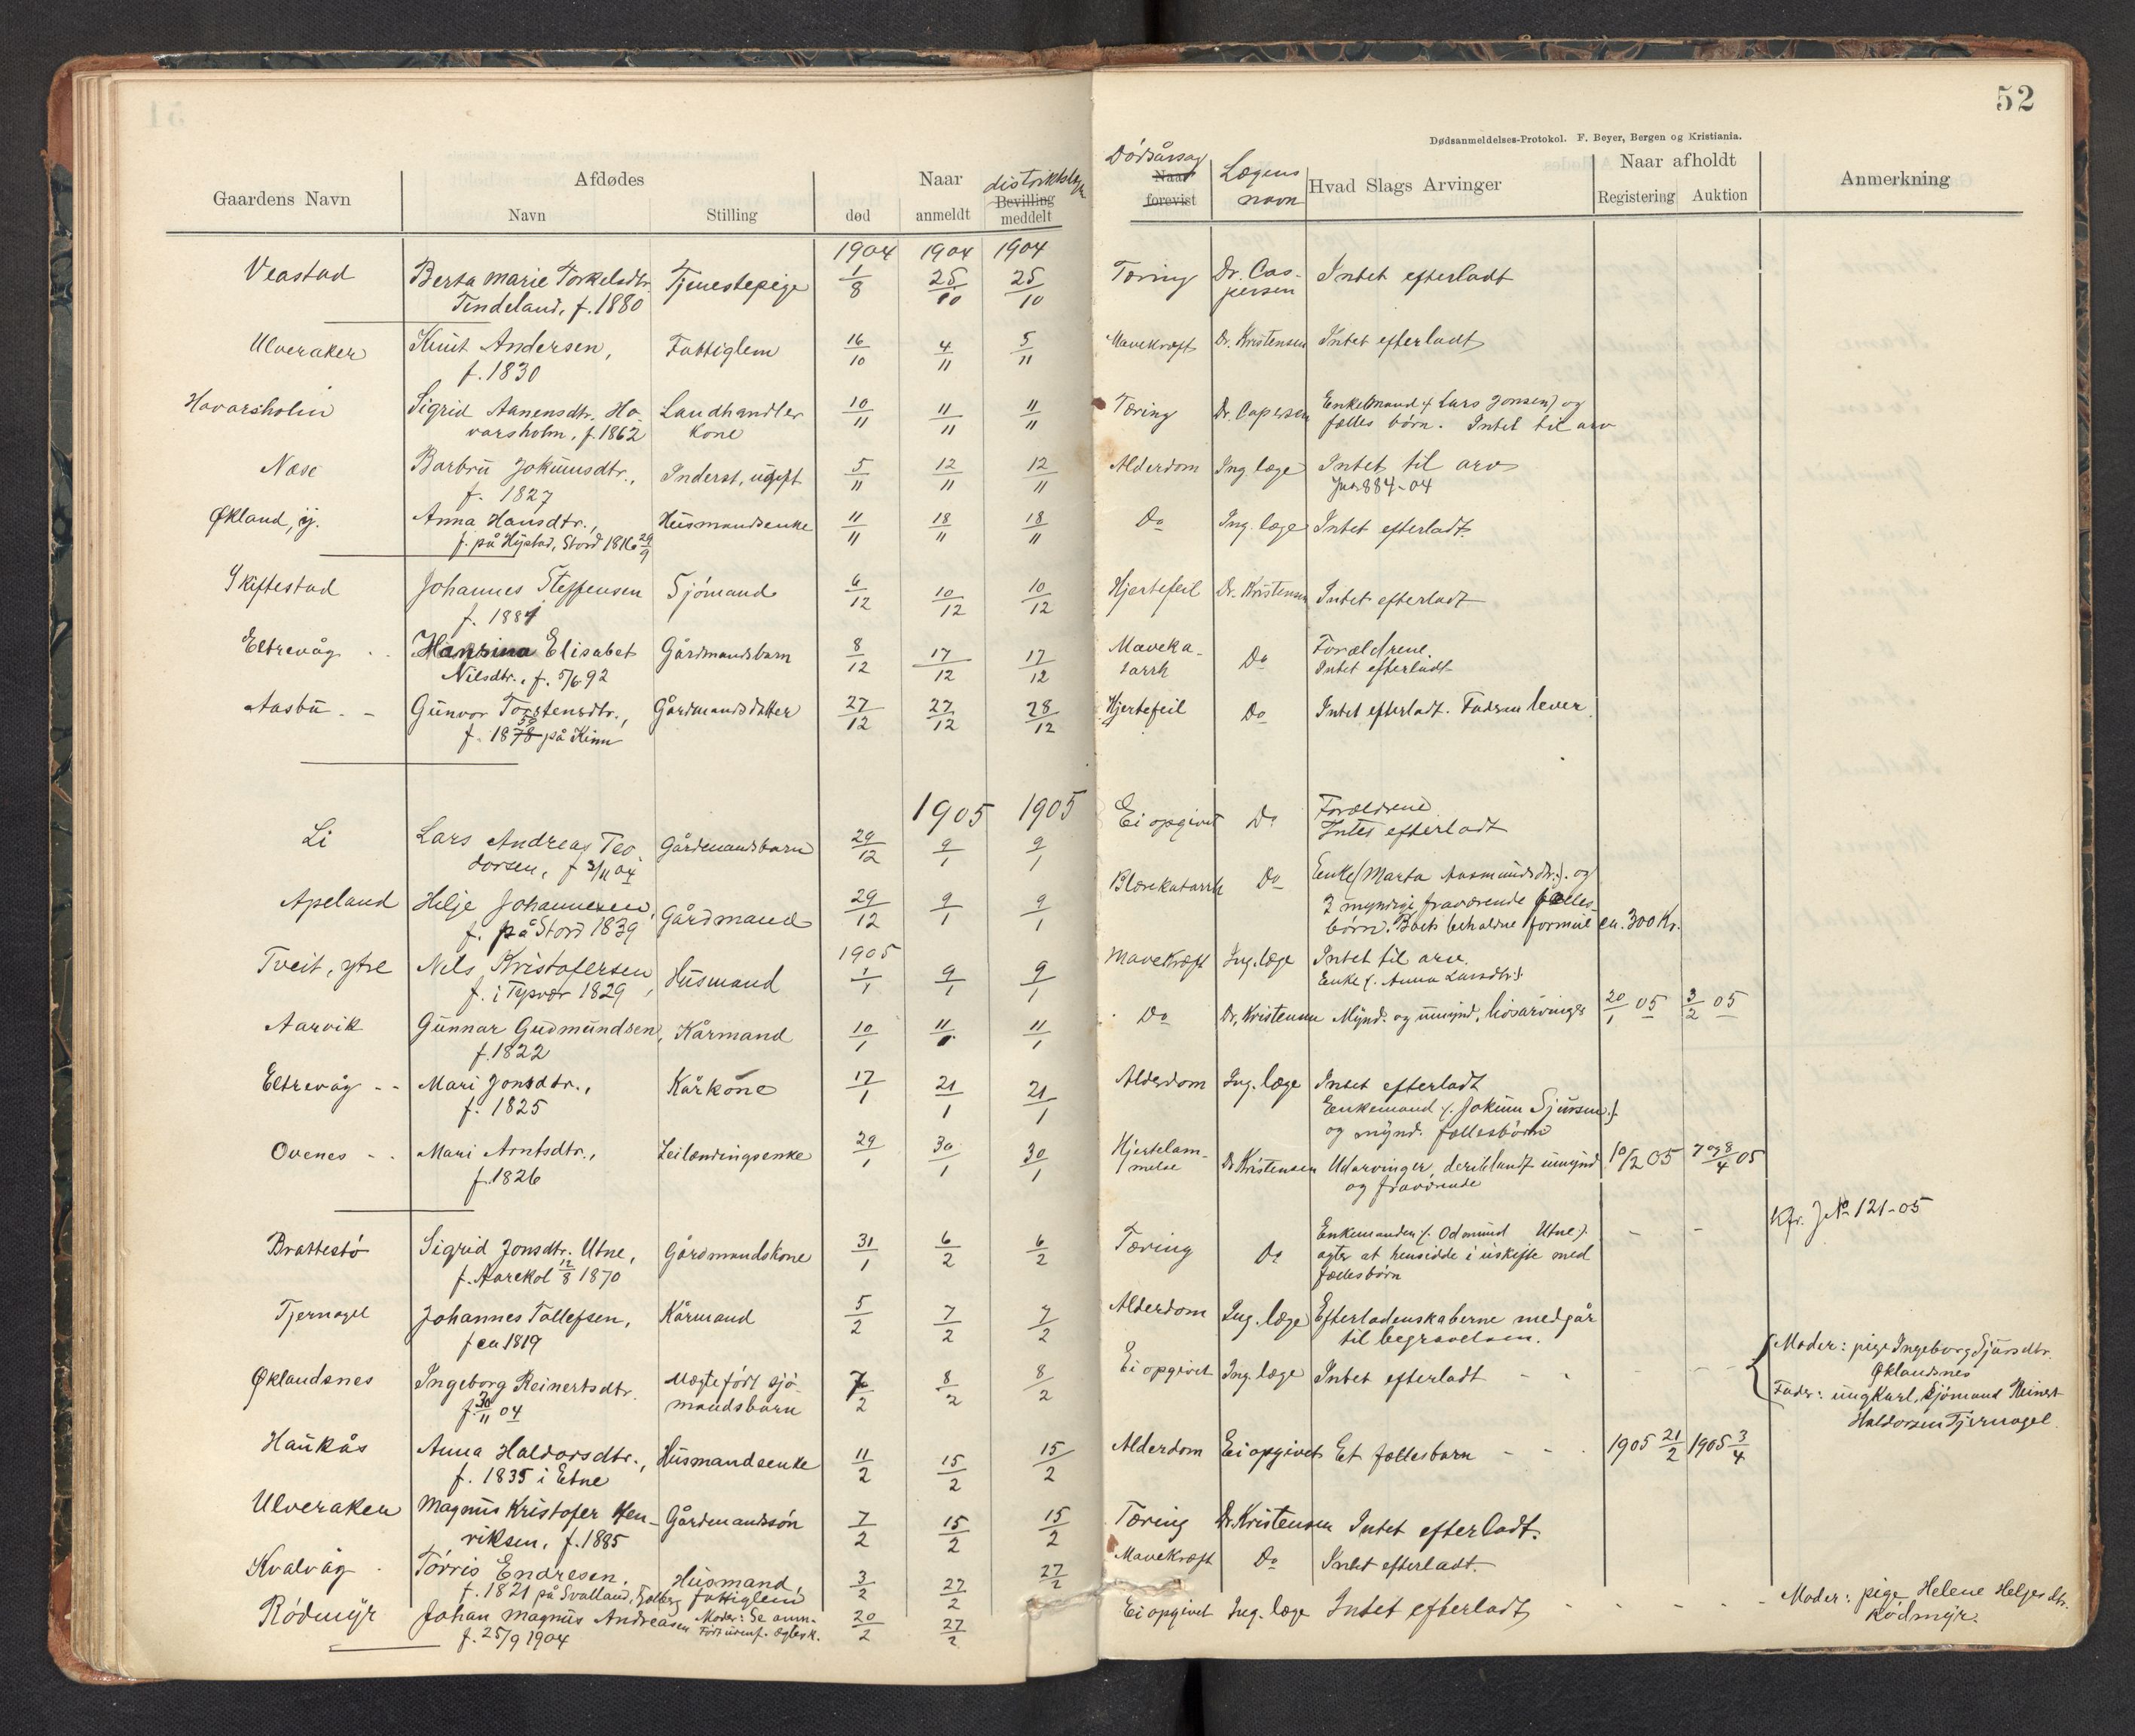 52
Dødsanmeldelses-Protokol. F. Beyer, Bergen og Kristiania.
Gaardens Navn | Afdødes Navn | Stilling | Naar død | anmeldt | Bevilling meddelt distriktslæge | Naar forevist Dödsårsag | Lægens navn | Hvad Slags Arvinger | Naar afholdt Registering | Auktion | Anmerkning
1904 1904 1904
Veastad Berta Marie Torkelsdtr. Tjenestepige 1/8 25/10 25/10 Tæring Dr. Cas- Intet efterladt
Tindeland, f. 1880 persen
Ulveraker Knut Andersen, Fattiglem 16/10 4/11 5/11 Mavekræft Dr. Kristensen Intet efterladt
f. 1830
Havarsholm Sigrid Aanensdtr. Ha- Landhandler 10/11 11/11 11/11 Tæring Dr. Caspersen Enkemand (Lars Jonsen) og
varsholm, f. 1862 kone fælles börn. Intet til arv
Næse Barbru Jokumsdtr., Inderst, ugift 5/11 12/11 12/11 Alderdom Ing. læge Intet til arv
f. 1827 Jno. 884-04
Økland, y. Anna Hansdtr., Husmandsenke 11/11 18/11 18/11 Do Ing. læge Intet efterladt.
f. på Hystad, Stord 1816 29/9
Skiftestad Johannes Steffensen Sjömand 6/12 10/12 10/12 Hjertefeil Dr. Kristensen Intet efterladt
f. 1881
Eltrevåg - - Hansina Elisabet Gårdmandsbarn 8/12 17/12 17/12 Maveka- Do Forældrene.
Nilsdtr., f. 5/6 92 tarrh Intet efterladt
Aasbu - - Gunvor Torstensdtr., Gårdmandsdatter 27/12 27/12 28/12 Hjertefeil Do Intet efterladt. Faderen lever.
f. 1878 på Kinn
1905 1905
Li Lars Andreas Teo- Gårdmandsbarn 29/12 9/1 9/1 Ei opgivet Do Forældrene
dorsen, f. 3/11 04 Intet efterladt
Apeland Hilje Johannesen, Gårdmand 29/12 9/1 9/1 Blærekatarrh Do Enke (Marta Aasmundsdtr.). og
f. på Stord 1839 3 myndige fraværende fælles-
börn. Boets beholdne formue ca. 300 Kr.
1905
Tveit, ytre Nils Kristofersen Husmand 1/1 9/1 9/1 Mavekræft Ing. læge Intet til arv.
f. i Tysvær 1829, Enke (. Anna Larsdtr.).
Aarvik Gunnar Gudmundsen, Kårmand 10/1 11/1 11/1 Do Dr. Kristensen Mynd. og umynd. livsarvinger 20/1 05 3/2 05
f. 1822
Eltrevåg - - Mari Jonsdtr., Kårkone 17/1 21/1 21/1 Alderdom Ing. læge Intet efterladt
f. 1825 Enkemand (. Jokum Sjursen.).
og mynd. fællesbörn
Ovenes - - Mari Arntsdtr., Leilændingsenke 29/1 30/1 30/1 Hjertelam- Dr Kristensen Udarvinger, deriblandt umynd. 10/2 05 7 og 8/4 05
f. 1826 melse og fraværende
Kfr. J No 121-05
Brattestö Sigrid Jonsdtr. Utne, Gårdmandskone 31/1 6/2 6/2 Tæring Do Enkemanden (. Odmund Utne.) - -
f. Aarekol 12/8 1870 agter at hensidde i uskifte med
fællesbörn
Tjernagel Johannes Tollefsen, Kårmand 5/2 7/2 7/2 Alderdom Ing. læge Efterladenskaberne medgår
f ca 1819 til begravelsen.
Øklandsnes Ingeborg Reinertsdtr. Uægte född sjö- 7/2 8/2 8/2 Ei opgivet Ing. læge Intet efterladt - - - - Moder: pige Ingeborg Sjursdtr.
f. 30/11 04 mandsbarn Øklandsnes
Fader: ungkarl, sjömand Reinert
Haldorsen Tjernagel.
Haukås Anna Haldorsdtr., Husmandsenke 11/2 15/2 15/2 Alderdom Ei opgivet Et fællesbarn - - - 1905 21/2 1905 3/4
f. 1835 i Etne
Ulveraker Magnus Kristofer Hen- Gårdmandssön 7/2 15/2 15/2 Tæring Dr Kristensen Intet efterladt.
riksen, f. 1885
Kvalvåg - Törris Endresen, Husmand, 3/2 27/2 27/2 Mavekræft Do Intet efterladt.
f. 1821 på Svalland, Fjelberg fattiglem
Rödmyr Johan Magnus Andreasen Moder: Se anm. 20/2 27/2 Ei opgivet Ing. læge Intet efterladt - - - - - Moder: pige Helene Helgesdtr.
f. 25/9 1904 Född udenf. ægtesk. Rödmyr.